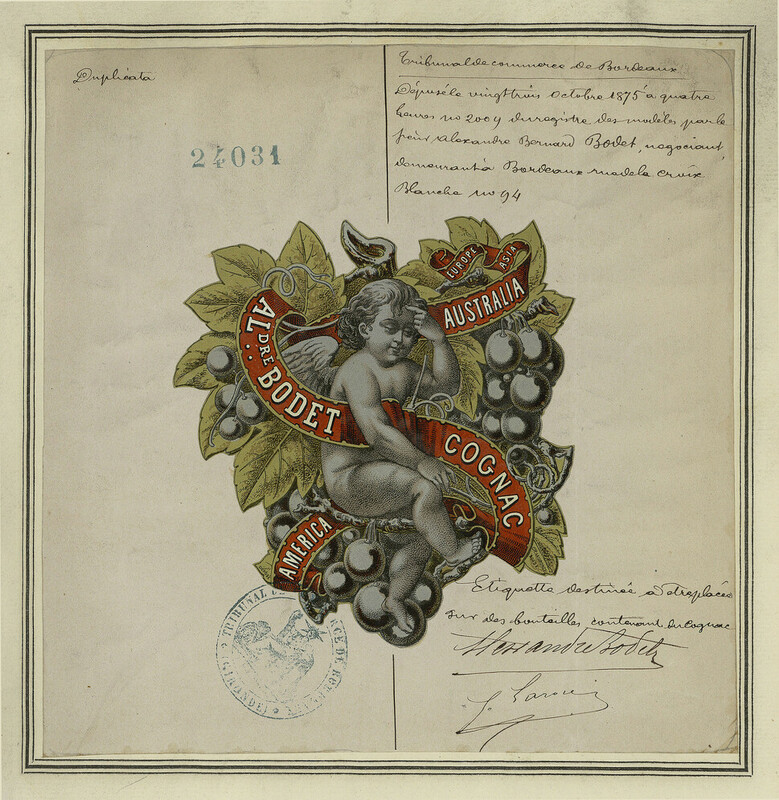 Duplicata
24031
Tribunal de commerce de Bordeaux
Déposé le vingt trois octobre 1875 à quatre
heures no 2009 du registre des modèles par le
sieur Alexandre Bernard Bodet, negociant,
demeurant à Bordeaux rue de la Croix
Blanche no 94
EUROPE
ASIA
AUSTRALIA
ALDRE BODET
COGNAC
AMERICA
Etiquette destinée à etre placée
sur des bouteilles contenant du Cognac
Alexandre Bodet
TRIBUNAL DE
RCE DE BORDEAUX
(GIRONDE)